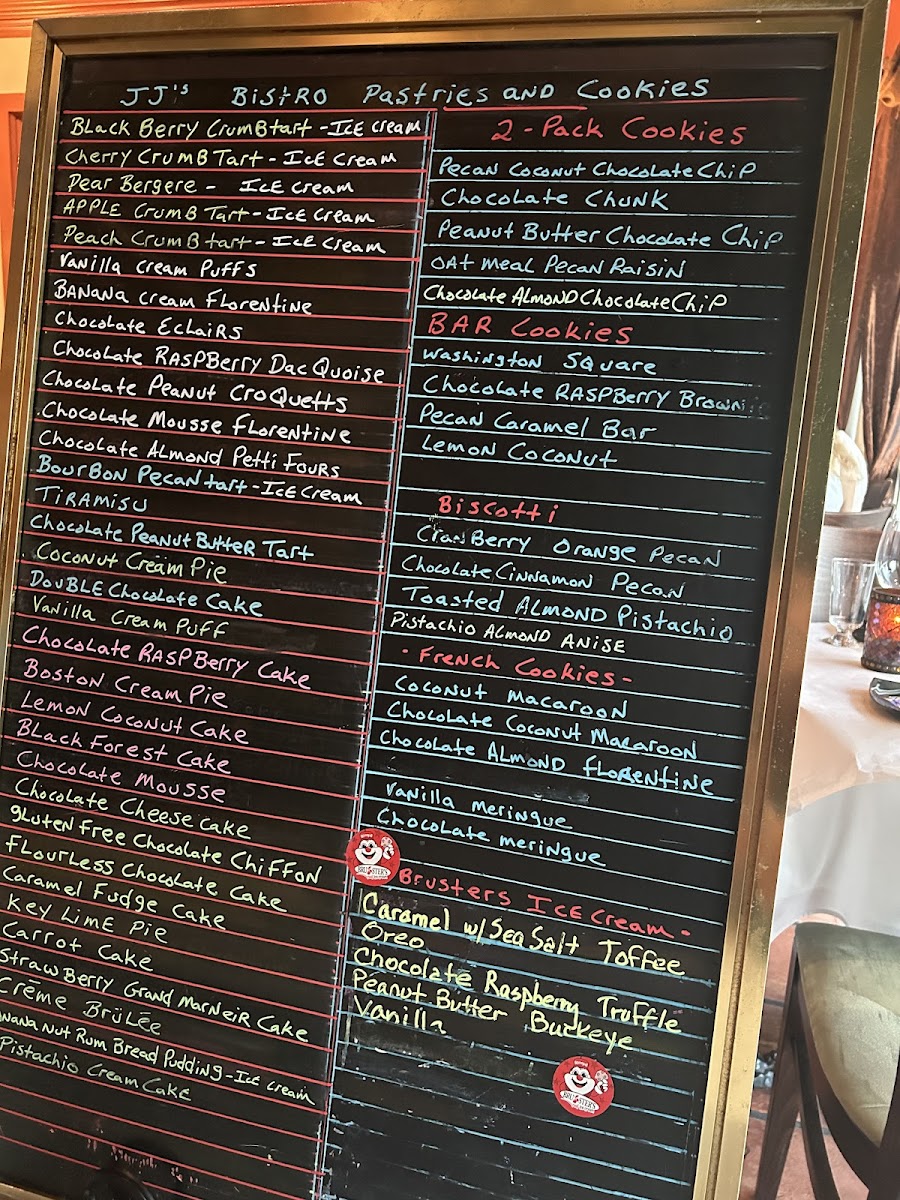 JJ's Bistro Pastries and Cookies
Black Berry Crumb tart - Ice cream
Cherry Crumb Tart - Ice Cream
Pear Bergere - Ice cream
Apple Crumb Tart - Ice Cream
Peach Crumb tart - Ice Cream
Vanilla cream Puffs
Banana cream Florentine
Chocolate Eclairs
Chocolate Raspberry Dac Quoise
Chocolate Peanut Croquetts
Chocolate Mousse Florentine
Chocolate Almond Petti Fours
Bourbon Pecan tart - Ice Cream
Tiramisu
Chocolate Peanut Butter Tart
Coconut Cream Pie
Double Chocolate Cake
Vanilla Cream Puff
Chocolate Raspberry Cake
Boston Cream Pie
Lemon Coconut Cake
Black Forest Cake
Chocolate Mousse
Chocolate Cheese cake
gluten Free Chocolate Chiffon
Flourless Chocolate Cake
Caramel Fudge Cake
Key Lime Pie
Carrot Cake
Strawberry Grand Marneir Cake
Crēme Brūlēe
Nut Rum Bread Pudding - Ice cream
Pistachio Cream Cake
2 - Pack Cookies
Pecan Coconut Chocolate Chip
Chocolate Chunk
Peanut Butter Chocolate Chip
Oat meal Pecan Raisin
Chocolate Almond Chocolate Chip
Bar Cookies
Washington Square
Chocolate Raspberry Brownie
Pecan Caramel Bar
Lemon Coconut
Biscotti
Cranberry Orange Pecan
Chocolate Cinnamon Pecan
Toasted Almond Pistachio
Pistachio Almond Anise
- French Cookies -
Coconut Macaroon
Chocolate Coconut Macaroon
Chocolate Almond florentine
Vanilla meringue
Chocolate meringue
BRUSTER'S
Brusters Ice Cream -
Caramel w/ Sea Salt Toffee
Oreo
Chocolate Raspberry Truffle
Peanut Butter Buckeye
Vanilla
BRUSTER'S